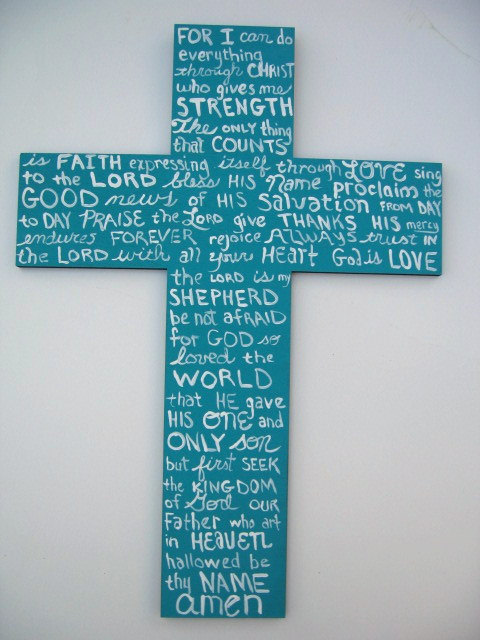 FOR I can do
everything
through CHRIST
who gives me
STRENGTH
The ONLY thing
that COUNTS
is FAITH expressing itself through LOVE sing
to the LORD bless HIS Name proclaim the
GOOD news of HIS Salvation FROM DAY
to DAY PRAISE the Lord give THANKS HIS mercy
endures FOREVER rejoice ALWAYS trust IN
the LORD with all your HEART God is LOVE
the LORD is my
SHEPHERD
be not afRAID
for GOD so
loved the
WORLD
that HE gave
HIS ONE and
ONLY son
but first SEEK
the KINGDOM
of God OUR
Father who art
in HEAVEN
hallowed be
thy NAME
amen